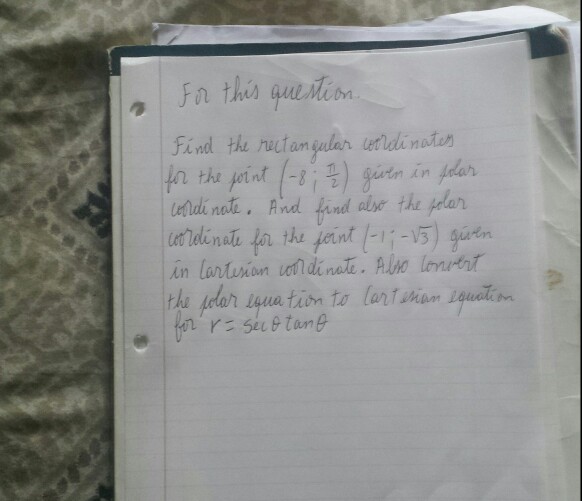 For this question.
Find the rectangular coordinates
for the point (-8; π/2) given in polar
coordinate. And find also the polar
coordinate for the point (-1; -√3) given
in Cartesian coordinate. Also convert
the polar equation to Cartesian equation
for r = secθ tanθ